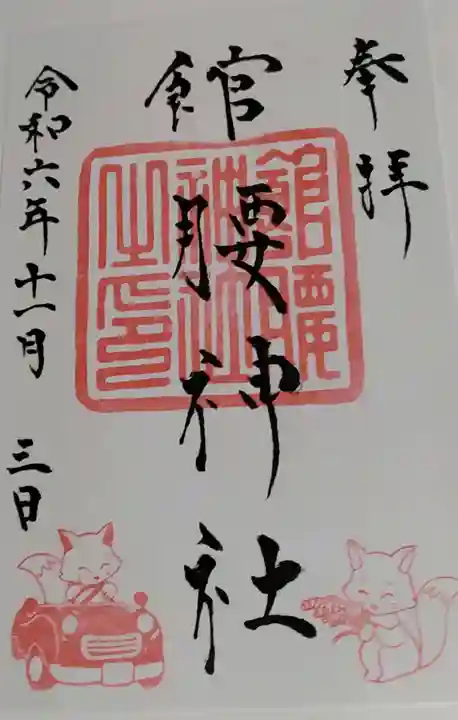 奉拝
館腰神社
館腰
神社
之印
令和六年十一月 三日